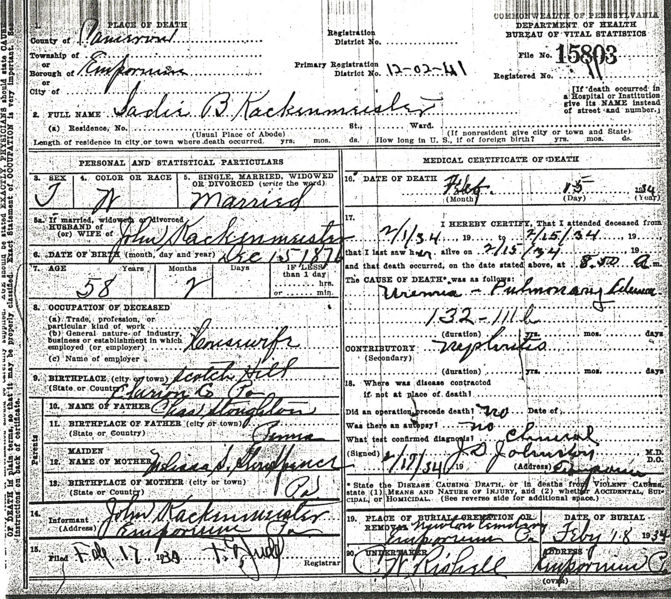 COMMONWEALTH OF PENNSYLVANIA
DEPARTMENT OF HEALTH
BUREAU OF VITAL STATISTICS
1. PLACE OF DEATH
County of Cameron
Township of
or
Borough of Emporium
or
City of
Registration
District No.
Primary Registration
District No. 12-02-41
File No. 15803
Registered No.
[If death occurred in
a Hospital or Institution
give its NAME instead
of street and number.]
2. FULL NAME Sadie B Kackenmeister
(a) Residence, No. St., Ward.
(Usual Place of Abode) (If nonresident give city or town and State)
Length of residence in city or town where death occurred. yrs. mos. ds. How long in U. S., if of foreign birth? yrs. mos. ds.
PERSONAL AND STATISTICAL PARTICULARS
3. SEX 4. COLOR OR RACE 5. SINGLE, MARRIED, WIDOWED
OR DIVORCED (write the word)
F W Married
5a. If married, widowed or divorced
HUSBAND of
(or) WIFE of John Kackenmeister
6. DATE OF BIRTH (month, day and year) Dec 15 1876
7. AGE Years Months Days IF LESS
than 1 day
hrs.
or min.
58 2
8. OCCUPATION OF DECEASED
(a) Trade, profession, or
particular kind of work
(b) General nature of industry,
business or establishment in which
employed (or employer) Housewife
(c) Name of employer
9. BIRTHPLACE (city or town) Scotch Hill
(State or Country) Clarion Co Pa
Parents
10. NAME OF FATHER Chas
11. BIRTHPLACE OF FATHER (city or town)
(State or Country) Penna
MAIDEN
12. NAME OF MOTHER
13. BIRTHPLACE OF MOTHER (city or town)
(State or Country) Pa
14. Informant John Kackenmeister
(Address) Emporium Pa
15. Filed Feb 17 19
Registrar
MEDICAL CERTIFICATE OF DEATH
16. DATE OF DEATH Feb. 15 1934
(Month) (Day) (Year)
17. I HEREBY CERTIFY, That I attended deceased from
2/1/34, 19 , to 2/15/34 19
that I last saw her alive on 2/15/34 19
and that death occurred, on the date stated above, at 8.50 a m.
The CAUSE OF DEATH* was as follows:
Uremia - Pulmonary Edema
132-111b
(duration) yrs. mos. ds.
CONTRIBUTORY Nephritis
(Secondary)
(duration) yrs. mos. ds.
18. Where was disease contracted
if not at place of death?
Did an operation precede death? no Date of
Was there an autopsy? no
What test confirmed diagnosis? Clinical
(Signed) J. D. Johnston M.D.
D.O.
2/17/34, 19 (Address) Emporium
* State the DISEASE CAUSING DEATH, or in deaths from VIOLENT CAUSES,
state (1) MEANS AND NATURE OF INJURY, and (2) whether ACCIDENTAL, SUI-
CIDAL, or HOMICIDAL. (See reverse side for additional space.)
19. PLACE OF BURIAL, CREMATION OR DATE OF BURIAL
REMOVAL Newton Cemetery
Emporium Pa. Feby 18 1934
20. UNDERTAKER ADDRESS
C W Rishell Emporium P
(OVER)